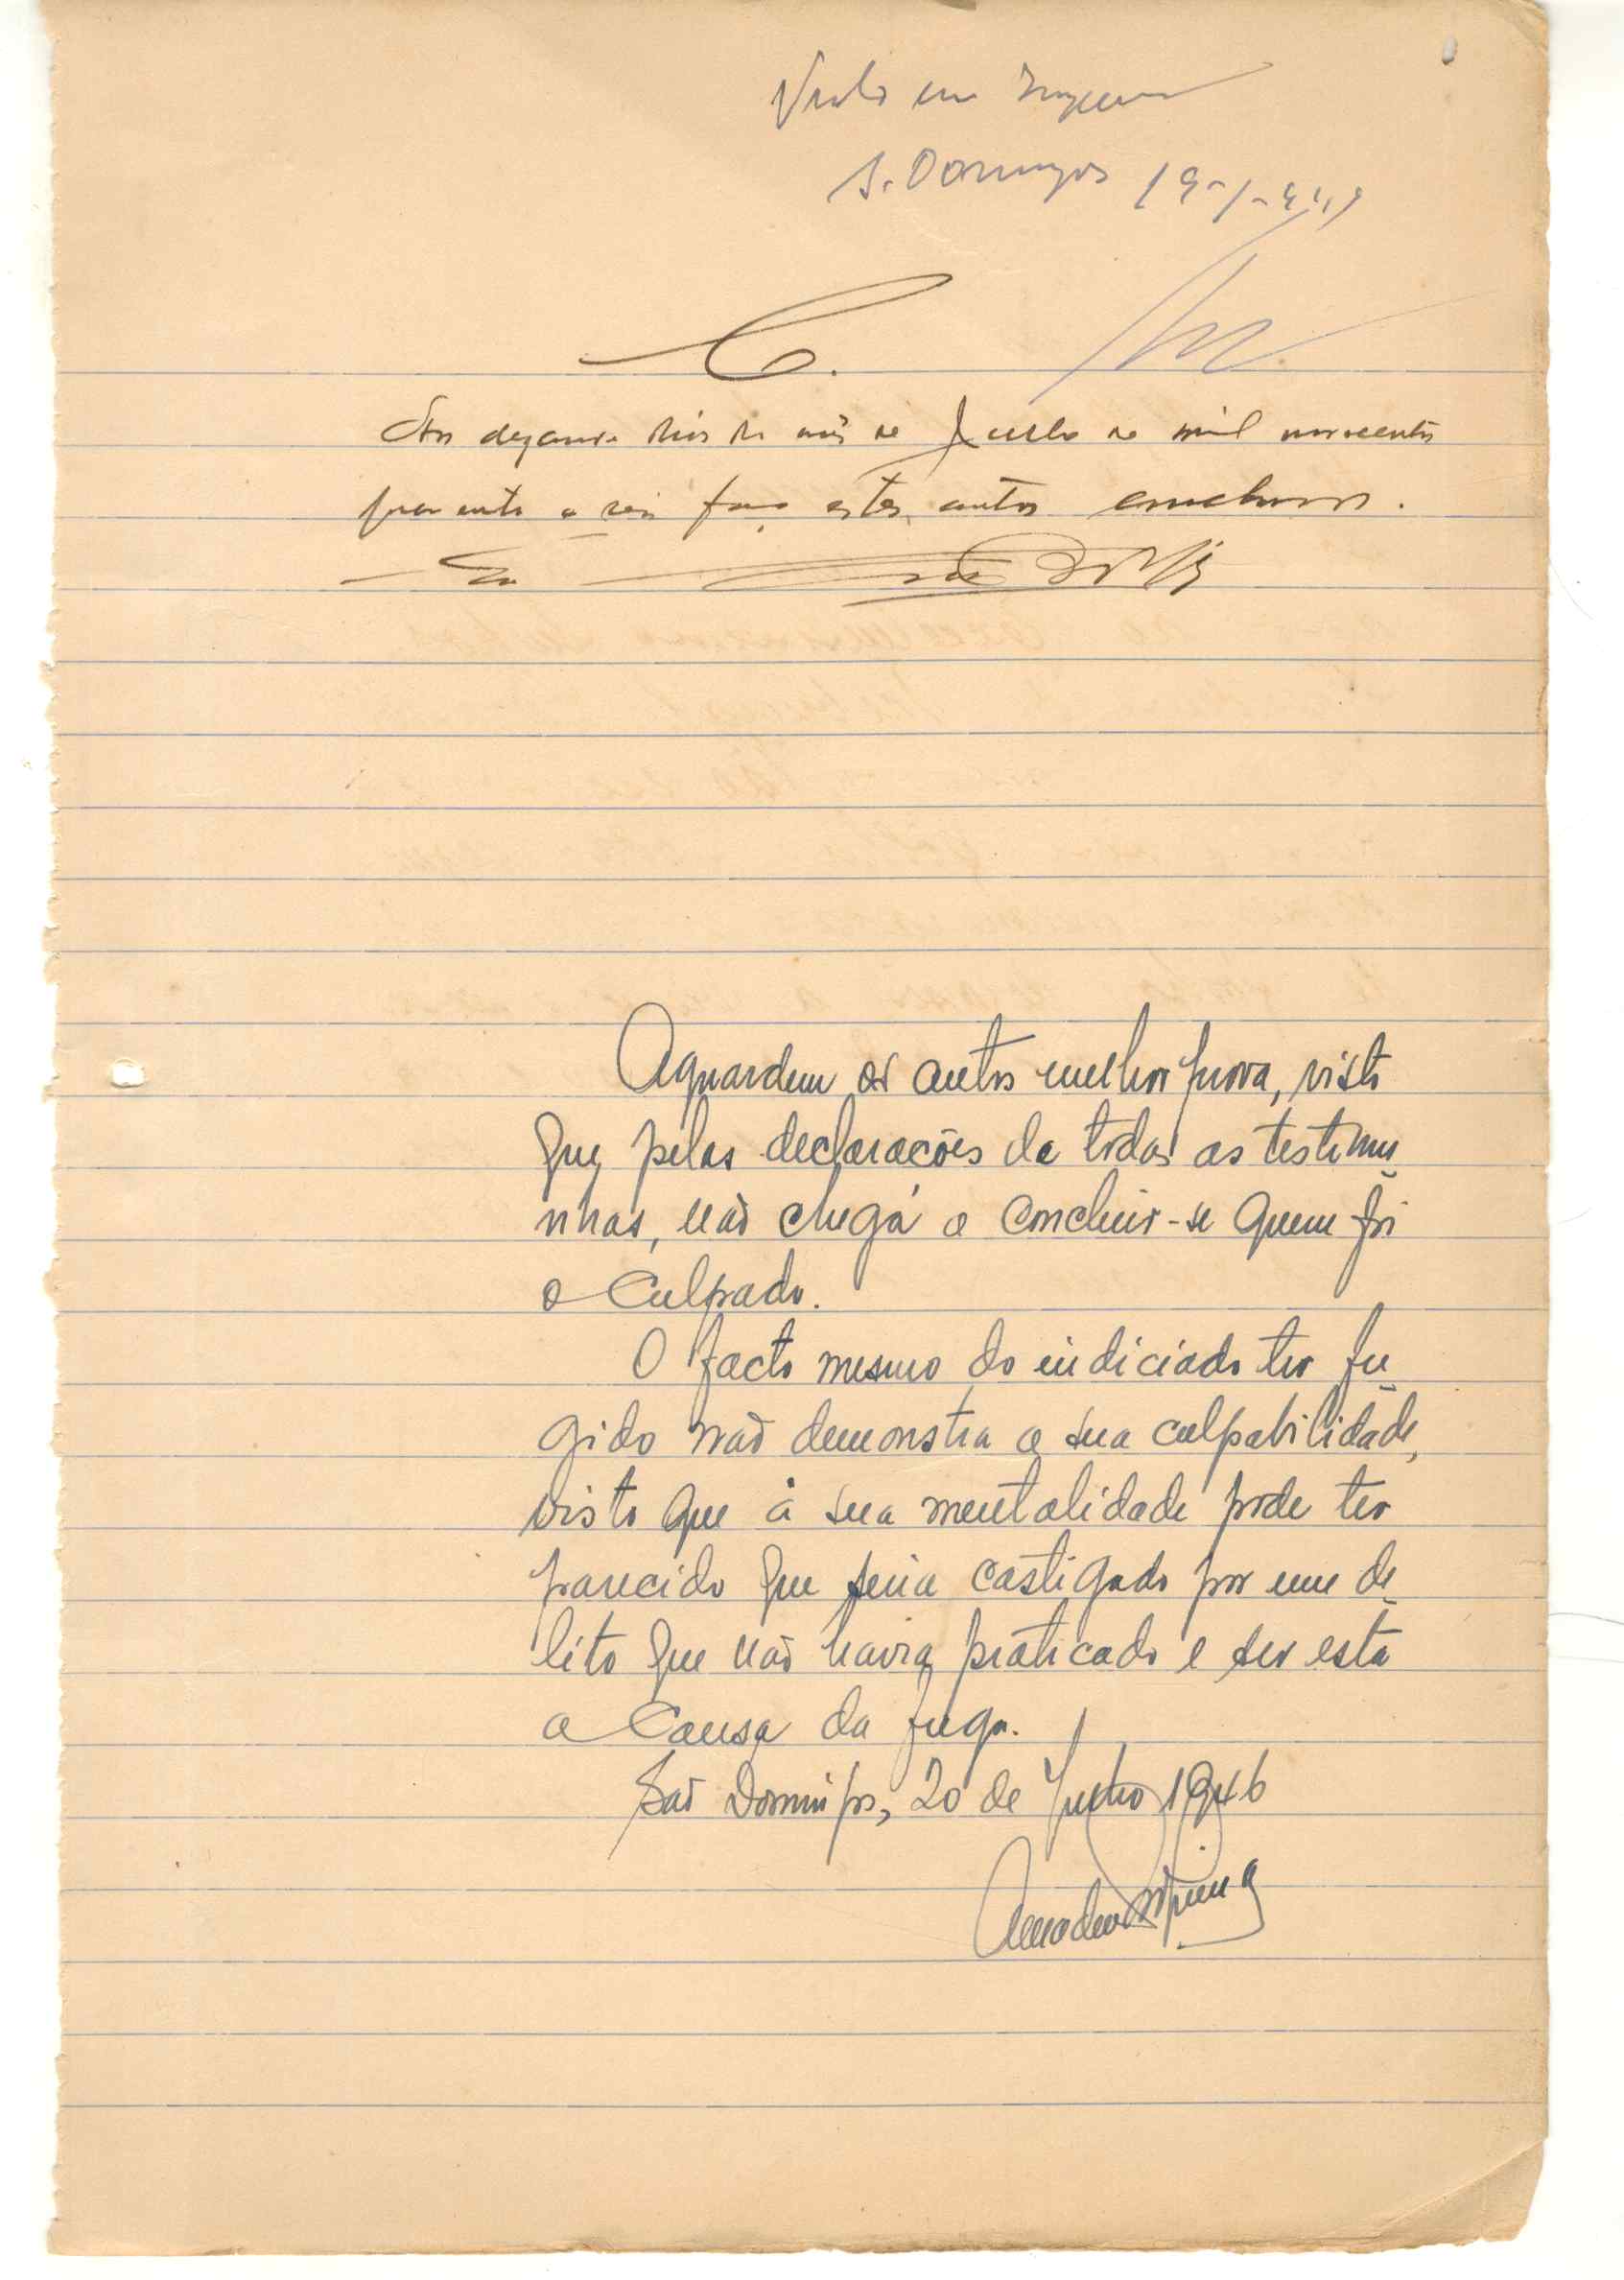 Visto em
S. Domingos 19-1-949
C.
Aos dezanove dias do mês de Julho de mil novecentos
quarenta e seis faço estes autos conclusos.
Eu
Aguardem os autos melhor prova, visto
que, pelas declarações de todas as testemu
nhas, não chega a concluir-se quem foi
o culpado.
O facto mesmo do indiciado ter fu
gido não demonstra a sua culpabilidade,
visto que à sua mentalidade pode ter
parecido que seria castigado por um de
lito que não havia praticado e ser esta
a causa da fuga.
São Domingos, 20 de Julho 1946